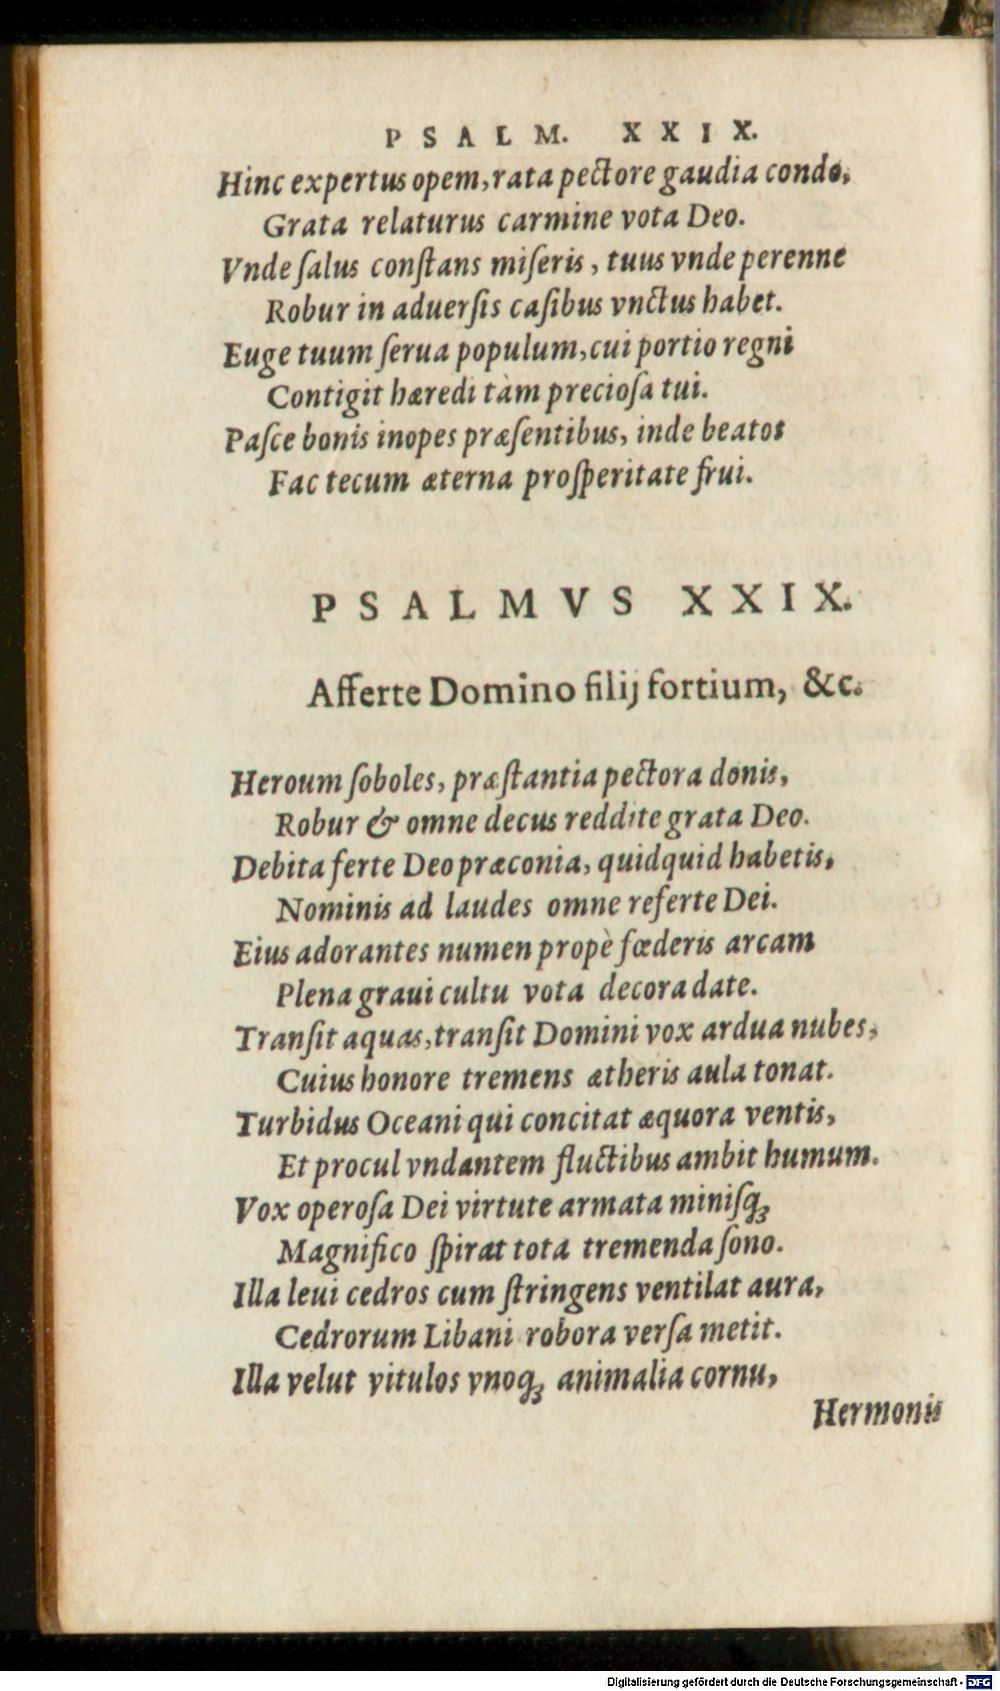 PSALM. XXIX.
Hinc expertus opem, rata pectore gaudia condo,
Grata relaturus carmine vota Deo.
Vnde ſalus conſtans miſeris, tuus vnde perenne
Robur in aduerſis caſibus vnctus habet.
Euge tuum ſerua populum, cui portio regni
Contigit hæredi tàm precioſa tui.
Paſce bonis inopes præſentibus, inde beatos
Fac tecum æterna proſperitate frui.
PSALMVS XXIX.
Afferte Domino filij fortium, &c.
Heroum ſoboles, præſtantia pectora donis,
Robur & omne decus reddite grata Deo.
Debita ferte Deo præconia, quidquid habetis,
Nominis ad laudes omne referte Dei.
Eius adorantes numen propè fœderis arcam
Plena graui cultu vota decora date.
Tranſit aquas, tranſit Domini vox ardua nubes,
Cuius honore tremens ætheris aula tonat.
Turbidus Oceani qui concitat æquora ventis,
Et procul vndantem fluctibus ambit humum.
Vox operoſa Dei virtute armata miniſqꝫ
Magnifico ſpirat tota tremenda ſono.
Illa leui cedros cum ſtringens ventilat aura,
Cedrorum Libani robora verſa metit.
Illa velut vitulos vnoqꝫ animalia cornu,
Hermonis
Digitalisierung gefördert durch die Deutsche Forschungsgemeinschaft - DFG